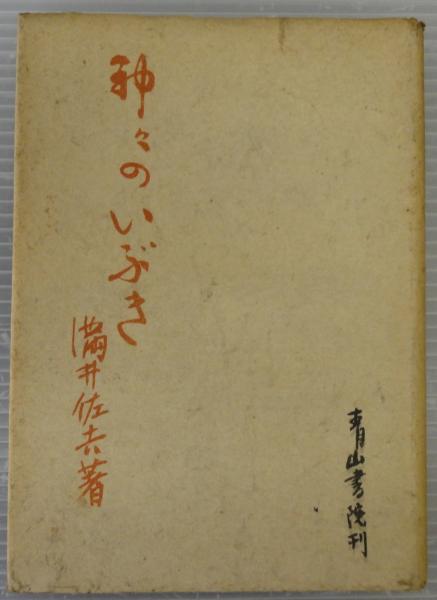 神々のいぶき
満井佐吉著
青山書院刊